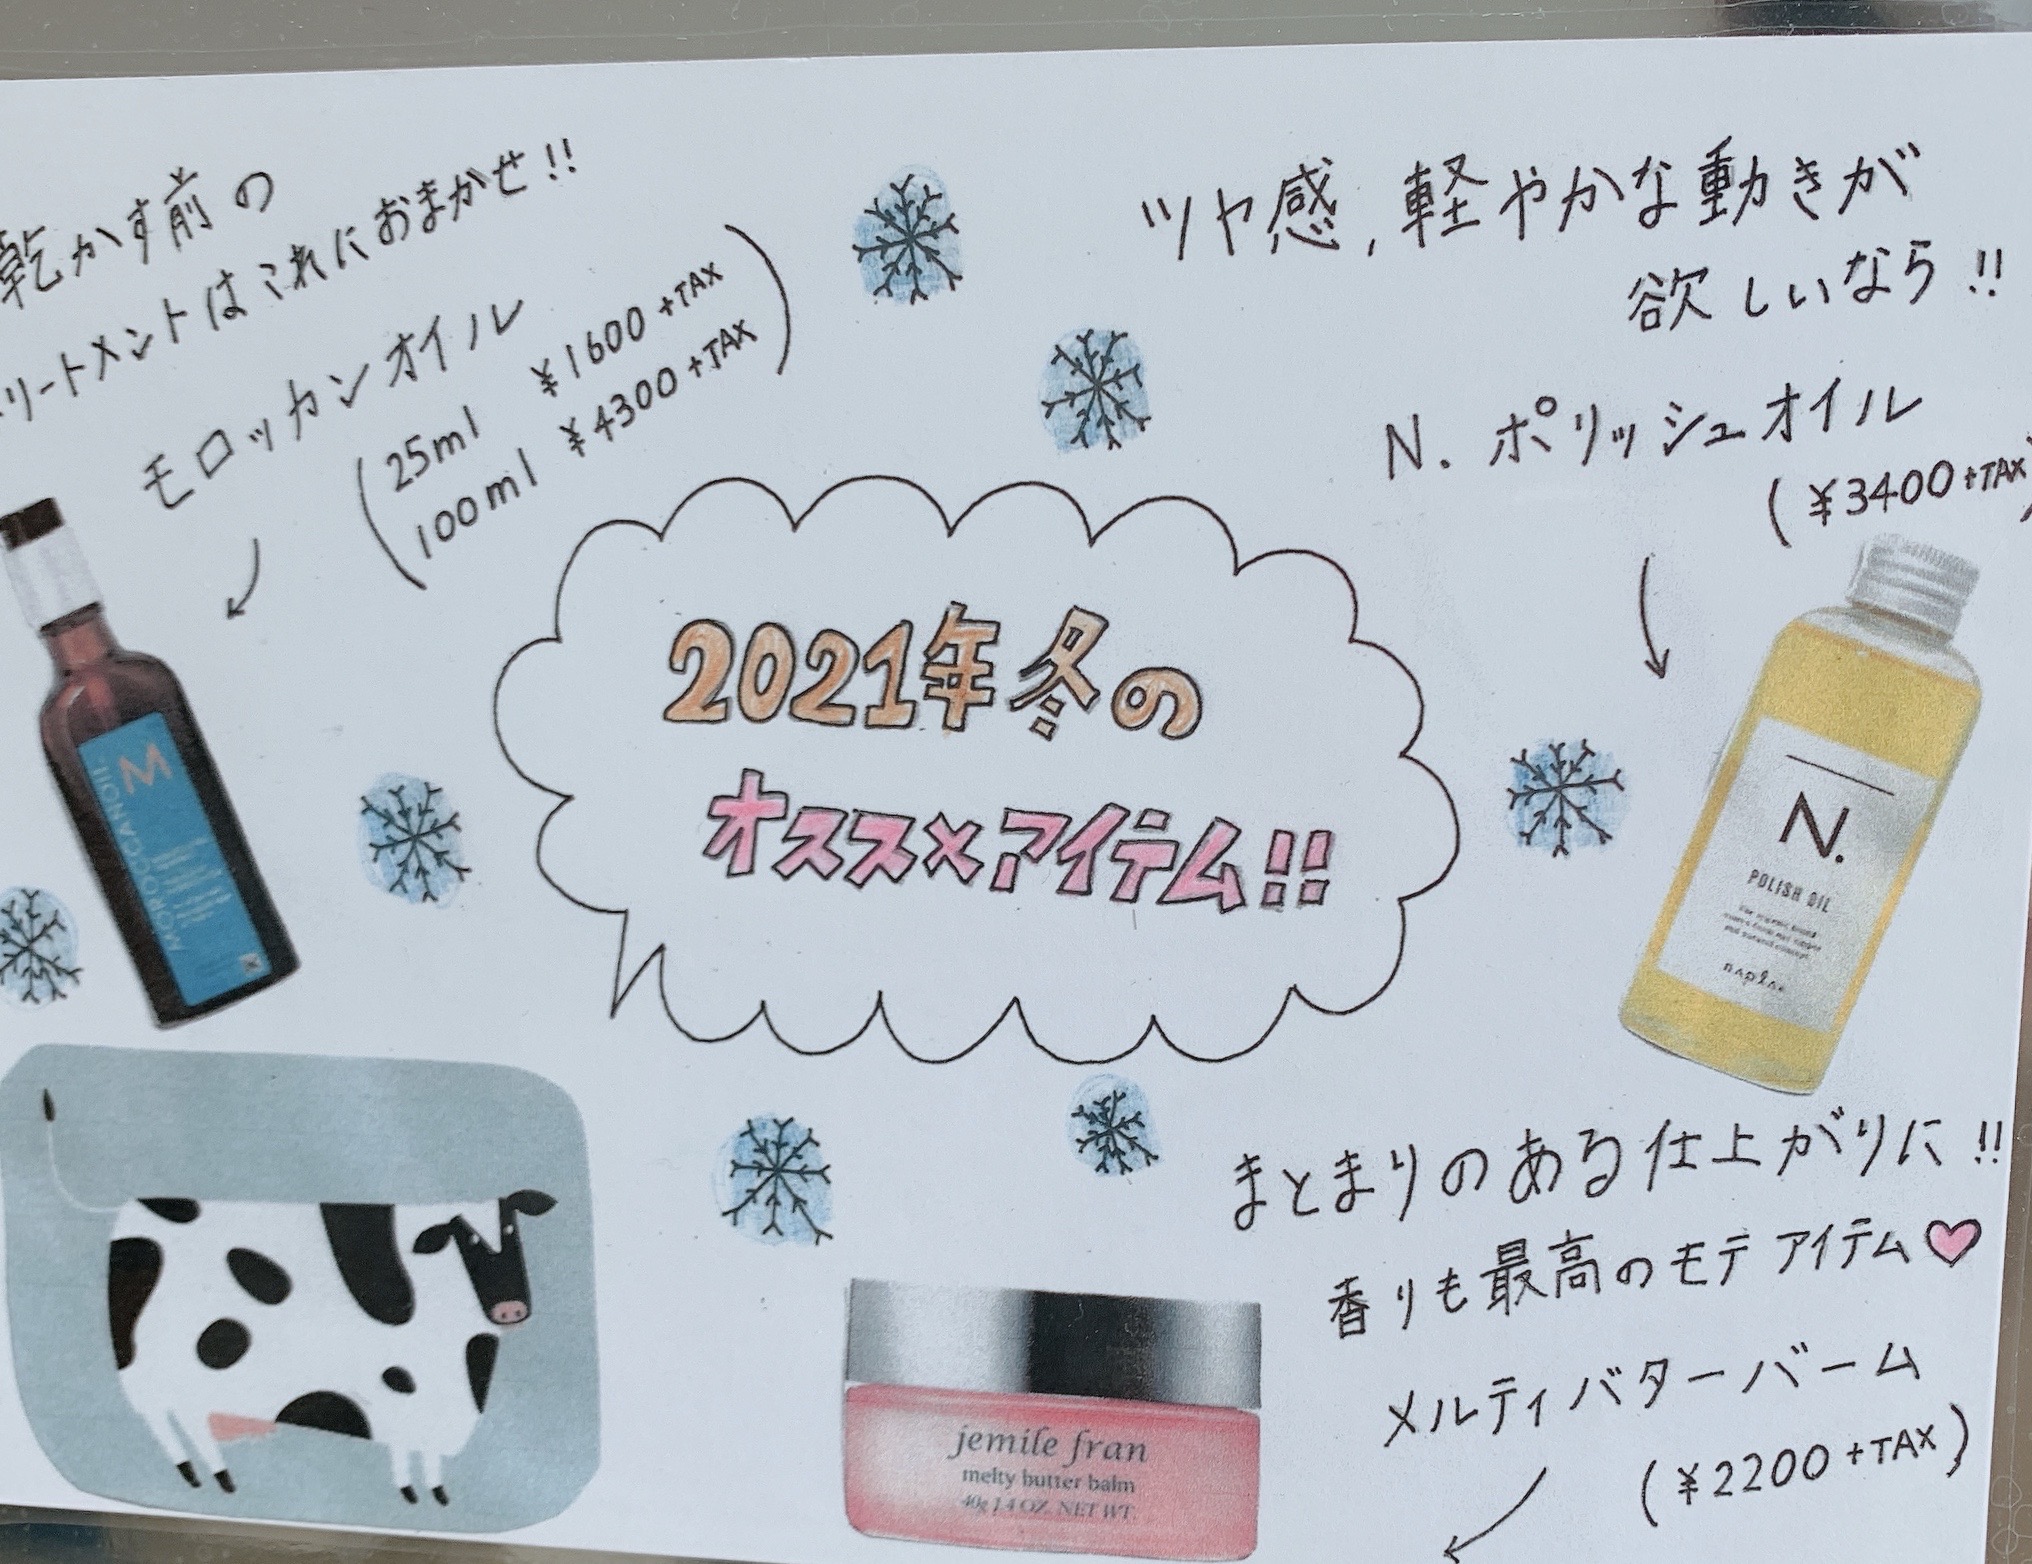 乾かす前の
リートメントはこれにおまかせ!!
モロッカンオイル
(25ml ¥1600+TAX
100ml ¥4300+TAX)
ツヤ感,軽やかな動きが
欲しいなら!!
N. ポリッシュオイル
(¥3400+TAX)
2021年冬の
オススメアイテム!!
M
MOROCCANOIL
N.
POLISH OIL
napla.
まとまりのある仕上がりに!!
香りも最高のモテアイテム♡
メルティバターバーム
(¥2200+TAX)
jemile fran
melty butter balm
40g 1.4 OZ. NET WT.